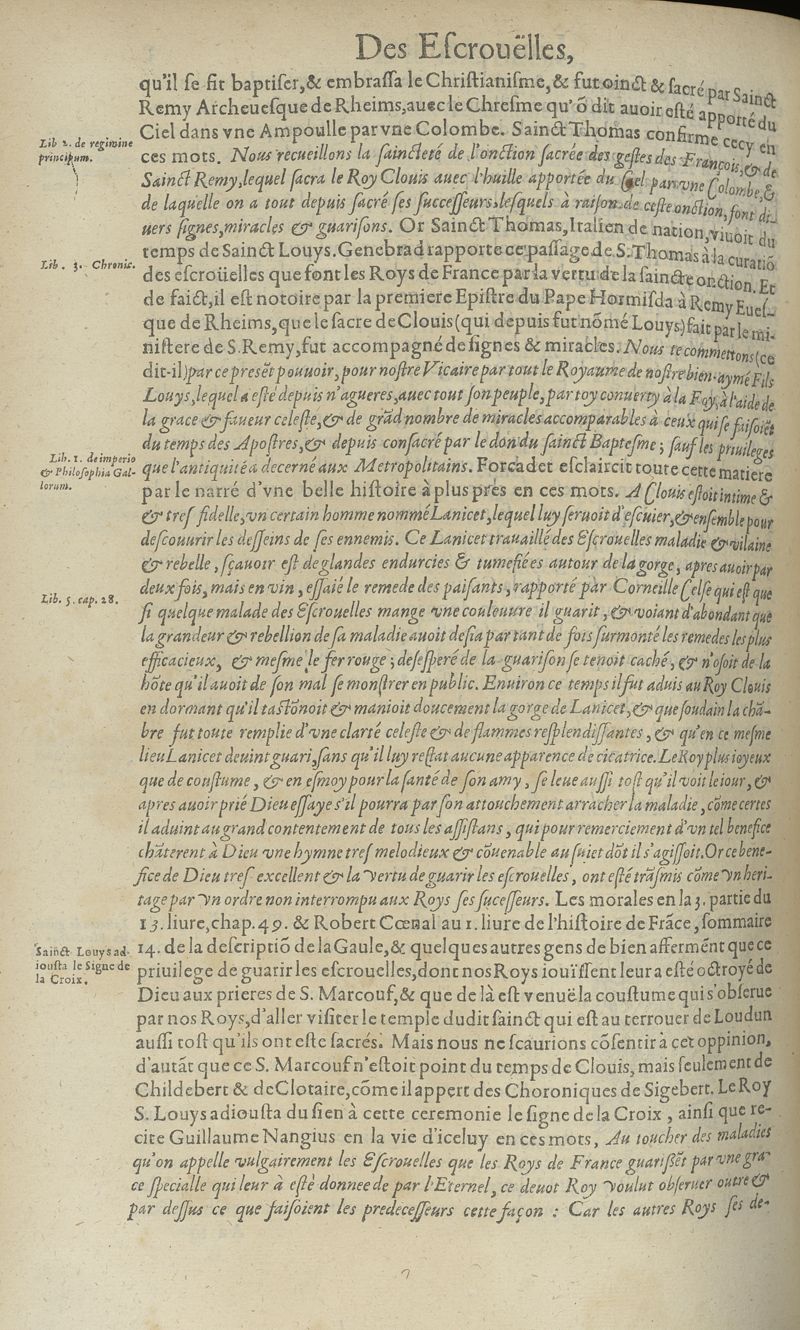 Des Eſcrouëlles,
qu'il ſe fit baptiſer,& embraſſa le Chriſtianiſme,& fut oinct & ſacré par Sainct
Remy Archeueſque de Rheims,auec le Chreſme qu'ō dit auoir eſté apporté du
Ciel dans vne Ampoulle par vne Colombe. Sainct Thomas confirme cecy en
Lib 2. de regimine
principum.
ces mots. Nous recueillons la ſaincteté de l'onction ſacrée des geſtes des François,& de
Sainct Remy,lequel ſacra le Roy Clouis auec l'huille apportée du Ciel par vne Colombe,&
de laquelle on a tout depuis ſacré ſes ſucceſſeurs,leſquels à raiſon de ceſte onction,font di-
uers ſignes,miracles & guariſons. Or Sainct Thomas,Italien de nation,viuoit du
temps de Sainct Louys.Genebrad rapporte ce paſſage de S.Thomas à la curatiō
Lib. 3. Chronic.
des eſcroüelles que font les Roys de France par la vertu de la ſaincte onction. Et
de faict,il eſt notoire par la premiere Epiſtre du Pape Hormiſda à Remy Eueſ-
que de Rheims,que le ſacre de Clouis (qui depuis fut nōmé Louys) fait par le mi-
niſtere de S.Remy,fut accompagné de ſignes & miracles. Nous te commettons (ce
dit-il)par ce preſēt pouuoir,pour noſtre Vicaire par tout le Royaume de noſtre bien-aymé Fils
Louys,lequel a eſté depuis n'agueres,auec tout ſon peuple,par toy conuerty à la Foy,à l'aide de
la grace & faueur celeſte,& de grād nombre de miracles accomparables à ceux qui ſe faiſoiēt
du temps des Apoſtres,& depuis conſacré par le don du ſainct Bapteſme; ſauf les priuileges
Lib. 1. de imperio
& Philoſophia Gal-
lorum.
que l'antiquité a decerné aux Metropolitains. Forcadet eſclaircit toute cette matiere
par le narré d'vne belle hiſtoire à plus prés en ces mots. A Clouis eſtoit intime &
& treſ fidelle,vn certain homme nommé Lanicet,lequel luy ſeruoit d'eſcuier,& enſemble pour
deſcouurir les deſſeins de ſes ennemis. Ce Lanicet trauaillé des Eſcrouelles maladie & vilaine
& rebelle, ſçauoir eſt de glandes endurcies & tumefiées autour de la gorge, apres auoir par
deux fois, mais en vin, eſſaié le remede des paiſants, rapporté par Corneille Celſe qui eſt que
Lib. 5. cap. 28.
ſi quelque malade des Eſcrouelles mange vne couleuure il guarit, & voiant d'abondant que
la grandeur & rebellion de ſa maladie auoit deſia par tant de fois ſurmonté les remedes les plus
efficacieux, & meſme le fer rouge; deſeſperé de la guariſon ſe tenoit caché, & n'oſoit de la
hōte qu'il auoit de ſon mal ſe monſtrer en public. Enuiron ce temps il fut aduis au Roy Clouis
en dormant qu'il taſtōnoit & manioit doucement la gorge de Lanicet,& que ſoudain la chā-
bre fut toute remplie d'vne clarté celeſte & de flammes reſplendiſſantes, & qu'en ce meſme
lieu Lanicet deuint guari,ſans qu'il luy reſtat aucune apparence de cicatrice.Le Roy plus ioyeux
que de couſtume, & en eſmoy pour la ſanté de ſon amy, ſe leue auſſi toſt qu'il voit le iour, &
apres auoir prié Dieu eſſaye s'il pourra par ſon attouchement arracher la maladie, cōme certes
il aduint au grand contentement de tous les aſſiſtans, qui pour remerciement d'vn tel benefice
chāterent à Dieu vne hymne treſ melodieux & cōuenable au ſuiet dōt il s'agiſſoit.Or ce bene-
fice de Dieu treſ excellent & la vertu de guarir les eſcrouelles, ont eſté trāſmis cōme vn heri-
tage par vn ordre non interrompu aux Roys ſes ſuceſſeurs. Les morales en la 3. partie du
13. liure,chap. 49. & Robert Cœnal au 1. liure de l'hiſtoire de Frāce, ſommaire
Sainct Louys ad-
iouſta le Signe de
la Croix.
14. de la deſcriptiō de la Gaule,& quelques autres gens de bien afferment que ce
priuilege de guarir les eſcrouelles,dont nos Roys iouïſſent leur a eſté octroyé de
Dieu aux prieres de S. Marcouf,& que de là eſt venuë la couſtume qui s'obſerue
par nos Roys,d'aller viſiter le temple dudit ſainct qui eſt au terrouer de Loudun
auſſi toſt qu'ils ont eſte ſacrés. Mais nous ne ſcaurions cōſentir à cet oppinion,
d'autāt que ce S. Marcouf n'eſtoit point du temps de Clouis, mais ſeulement de
Childebert & de Clotaire,cōme il appert des Choroniques de Sigebert. Le Roy
S. Louys adiouſta du ſien à cette ceremonie le ſigne de la Croix, ainſi que re-
cite Guillaume Nangius en la vie d'iceluy en ces mots, Au toucher des maladies
qu'on appelle vulgairement les Eſcrouelles que les Roys de France guariſſēt par vne gra-
ce ſpecialle qui leur à eſté donnee de par l'Eternel, ce deuot Roy voulut obſeruer outre &
par deſſus ce que faiſoient les predeceſſeurs cette façon : Car les autres Roys ſes de-